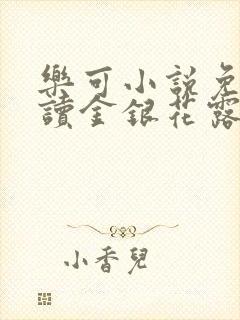 樂可小說免
讀金銀花露
小香兒